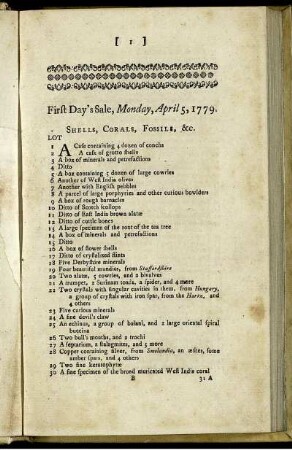 [ 1 ]
First Day's Sale, Monday, April 5, 1779.
SHELLS, CORALS, FOSSILS, &c.
LOT
1 A Case containing 4 dozen of conchs
2 A cask of grotto shells
3 A box of minerals and petrefactions
4 Ditto
5 A box containing 5 dozen of large cowries
6 Another of West India olives
7 Another with English pebbles
8 A parcel of large porphyries and other curious bowlders
9 A box of rough barnacles
10 Ditto of Scotch scollops
11 Ditto of East India brown
12 Ditto of cuttle bones
13 A large specimen of the root of the tea tree
14 A box of minerals and petrefactions
15 Ditto
16 A box of flower shells
17 Ditto of crystalized flints
18 Five Derbyshire minerals
19 Four beautiful mundics, from Staffordshire
20 Two slate, 5 cowries, and 2 bivalves
21 A trumpet, 2 Surinam toads, a spider, and 4 more
22 Two crystals with singular cavities in them, from Hungary,
a group of crystals with iron spar, from the Hartz, and
4 others
23 Five curious minerals
24 A fine devil's claw
25 An echinus, a group of balani, and 2 large oriental spiral
buccina
26 Two bull's mouths, and 2 trochi
27 A septarium, a stalagmites, and 5 more
28 Copper containing silver, from an some
amber and 6 others
29 Two fine keratophytæ
30 A fine specimen of the broad muricated West India coral
B
31 A